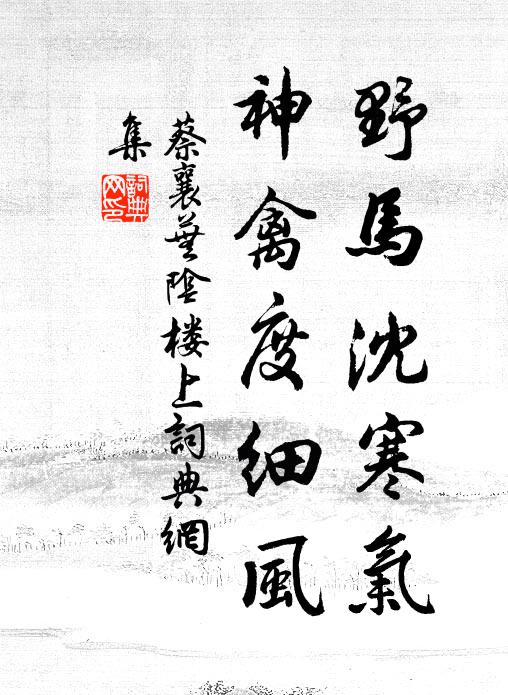 野馬沈寒氣
神禽度細風
蔡襄蕪陰樓上詞典網
集
詞典
网印